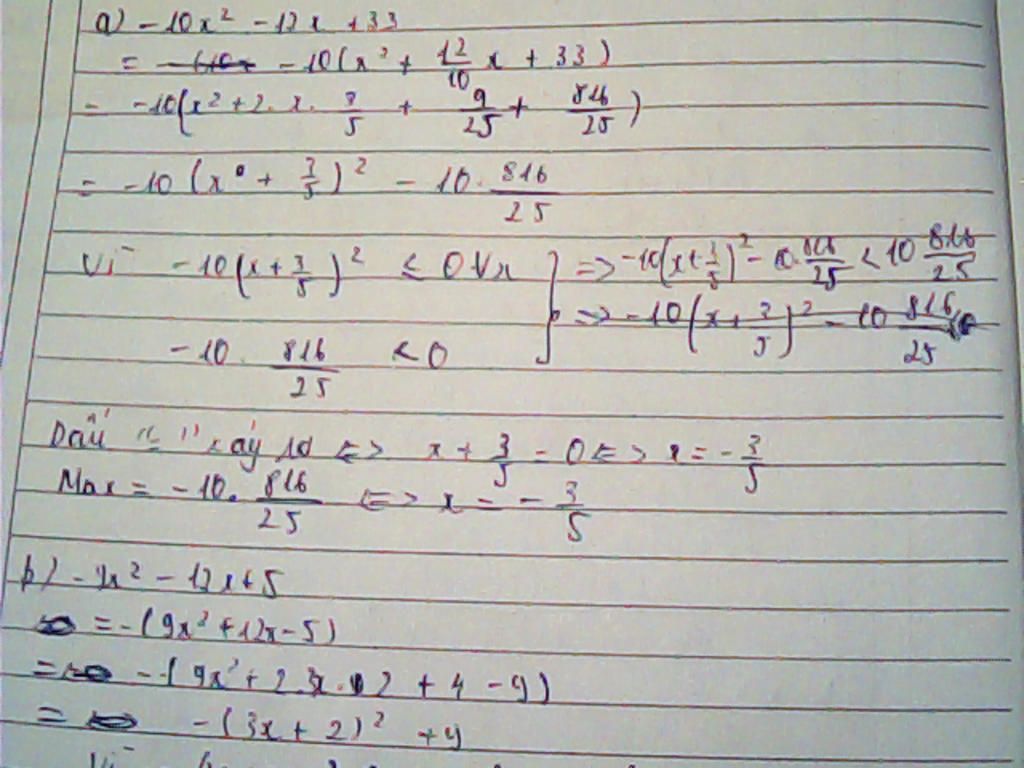 a) -10x² - 12x + 33
= -10(x² + 12/10 x + 33)
= -10(x² + 2. x. 3/5 + 9/25 + 816/25)
= -10 (x + 3/5)² - 10. 816/25
Vì -10(x + 3/5)² ≤ 0 ∀x } => -10(x + 3/5)² - 10. 816/25 < 10 816/25
-10. 816/25 < 0 => -10(x + 3/5)² - 10 816/25
Dấu "=" xảy ra <=> x + 3/5 = 0 <=> x = -3/5
Max = -10. 816/25 <=> x = -3/5
b) -9x² - 12x + 5
= -(9x² + 12x - 5)
= -(9x² + 2.3x.2 + 4 - 9)
= -(3x + 2)² + 9
Vì